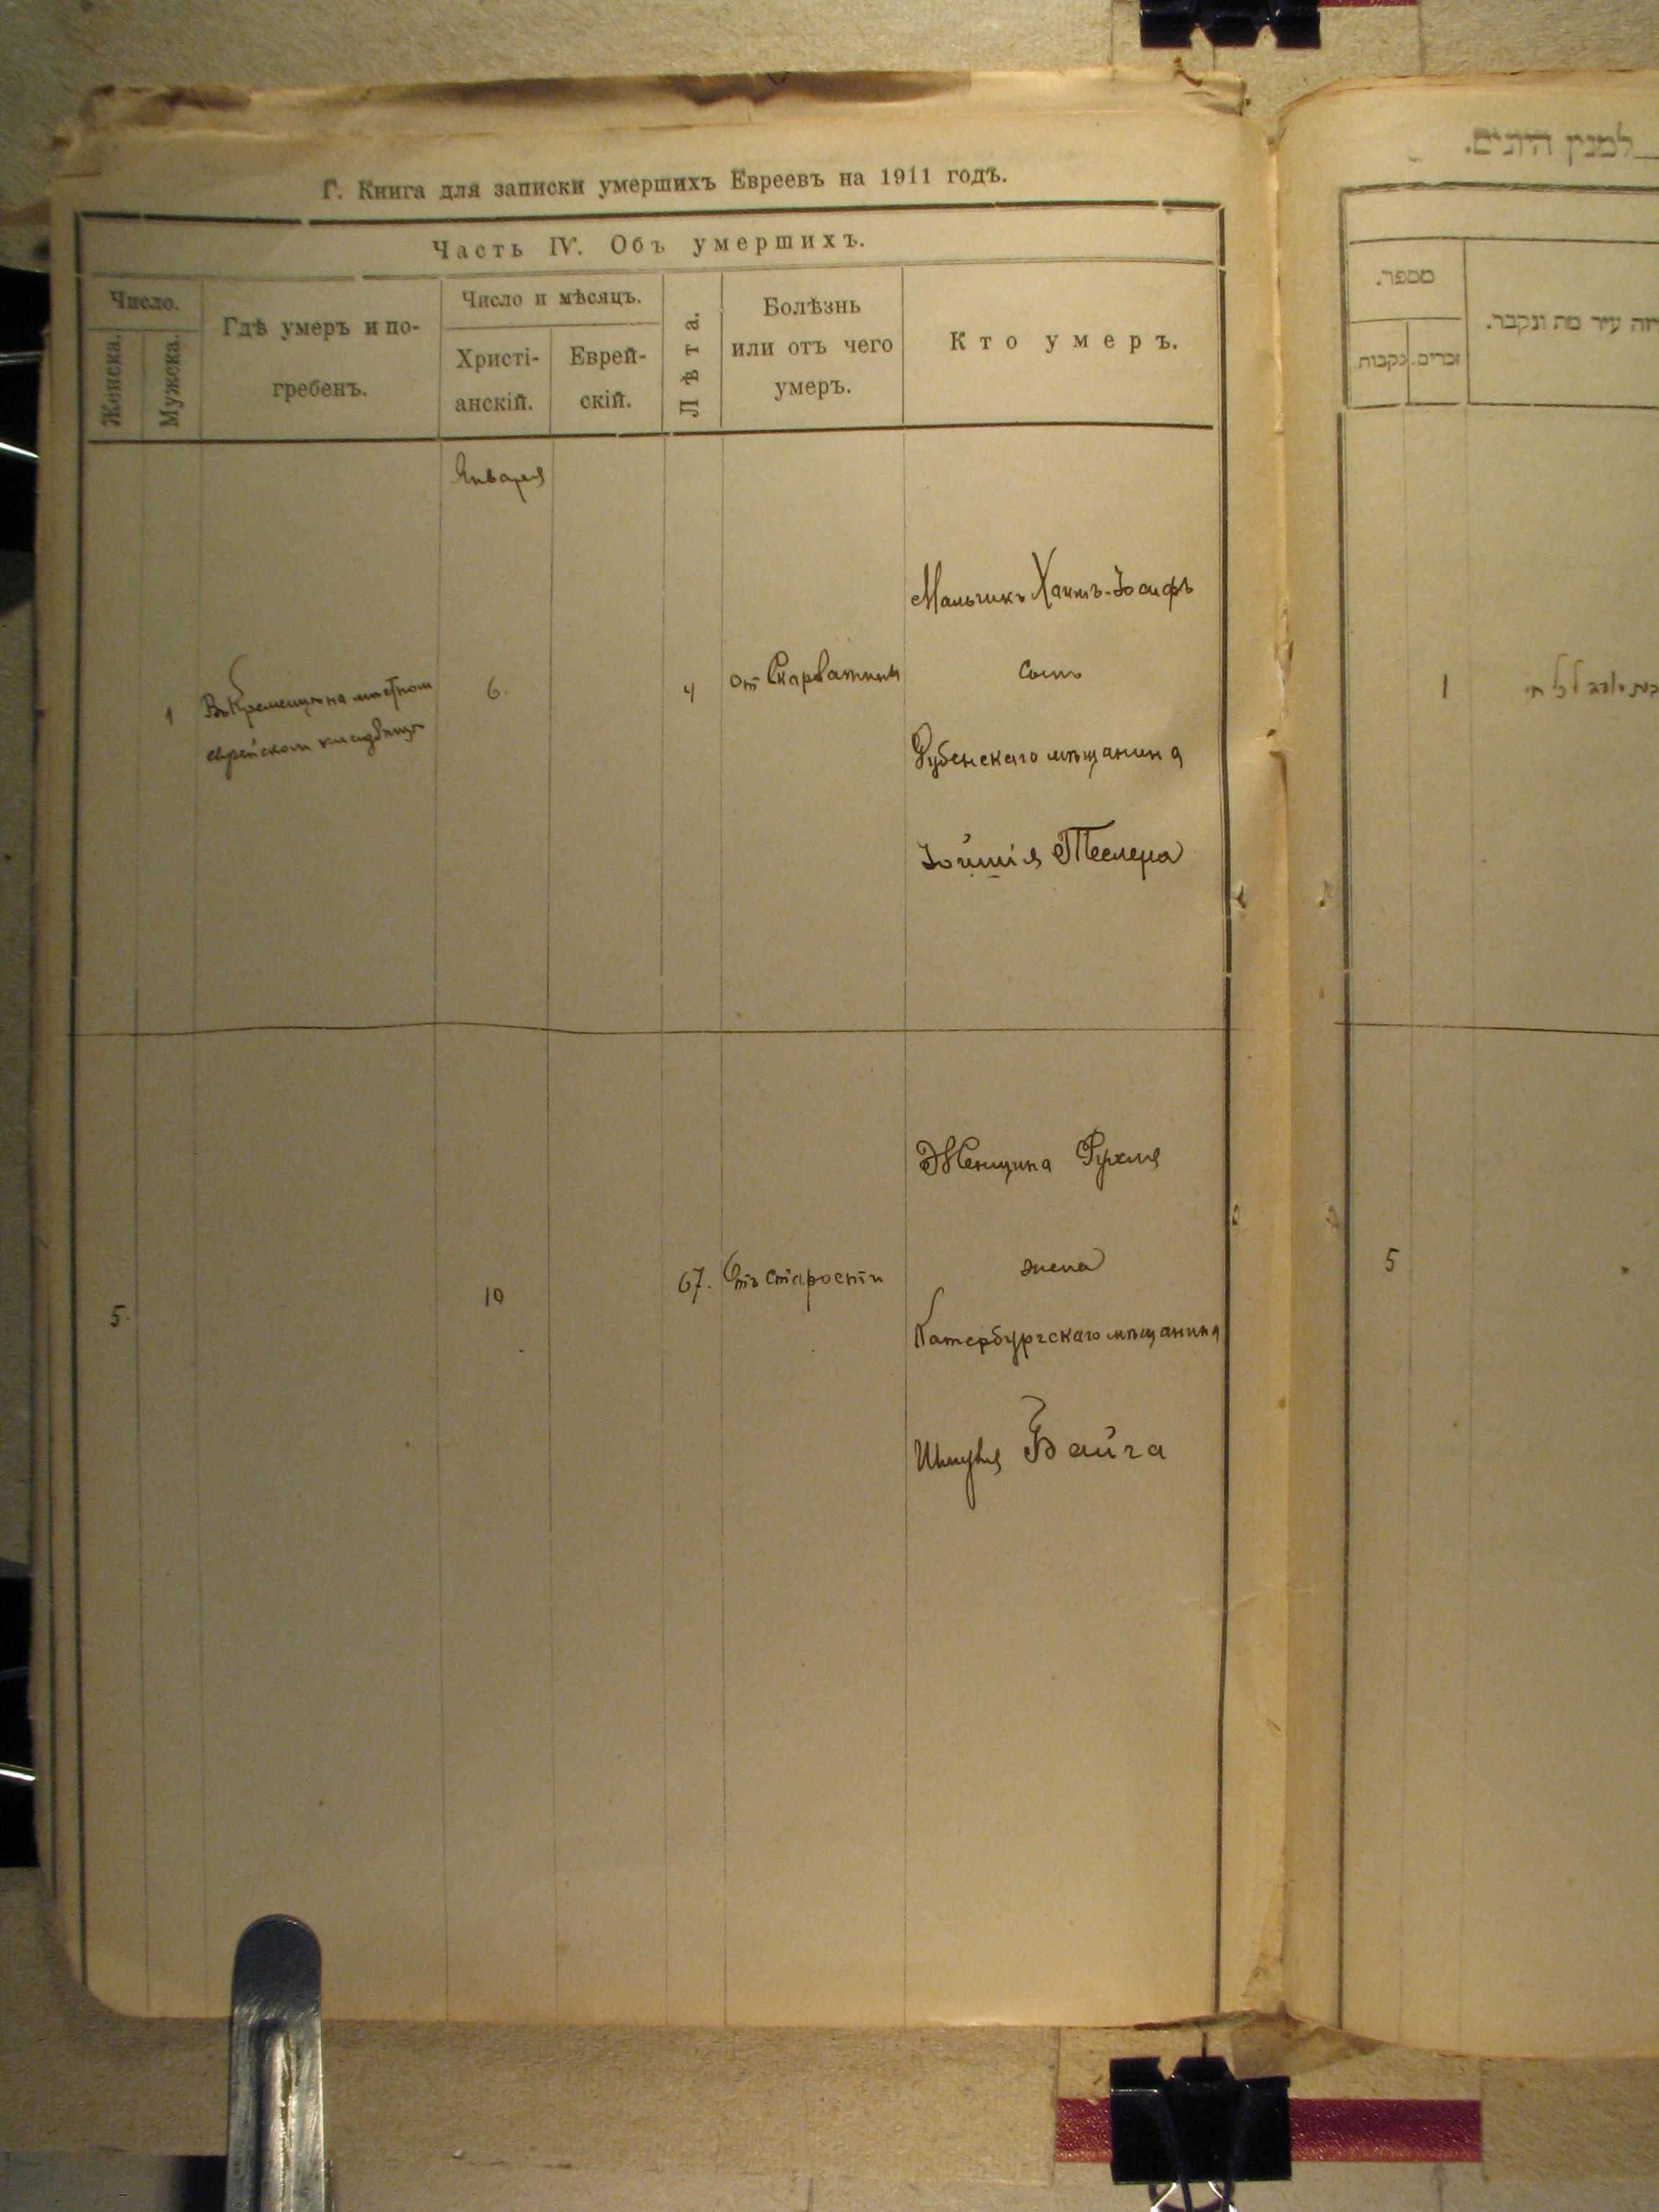 Г. Книга для записки умершихъ Евреевъ на 1911 годъ.
Часть IV. Объ умершихъ.
Число.
Женска.
Мужска.
Гдѣ умеръ и по-
гребенъ.
Число и мѣсяцъ.
Христі-
анскій.
Еврей-
скій.
Лѣта.
Болѣзнь
или отъ чего
умеръ.
Кто умеръ.
Января
1
Въ Кременцѣ на местном
еврейском кладбищѣ
6.
4
от Скарлатины
Мальчикъ Хаимъ-Іосифъ
сынъ
Дубенскаго мѣщанина
Теслера
5.
10
67.
Отъ старости
Женщина Рухля
жена
Катербургскаго мѣщанина
Шмуля Вайга
למנין היתים.
מספר.
זכרים.
נקבות
עיר מת ונקבר.
1
5